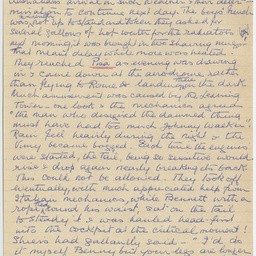 mination to continue next day. The boys french
was not up to standard when they asked for
several gallons of hot water for the radiators
next morning, it was brought in two shaving mugs
that meant delay while more was heated.
They reached Pisa as evening was drawing
in & came down at the aerodrome rather
than flying to Rome & landing in the dark.
Much amusement was caused by the Leaning
Tower - one look & the mechanics agreed
"the man who designed the damned thing
must have had too much Johnny Walker".
Rain fell heavily during the night & the
Vimy became bogged. Each time the engines
were started, the tail, being so sensitive would
rise & drop again nearly breaking its back.
This could not be allowed. They took off
eventually, with much appreciated help from
Italian mechanics, while Bennett with a
rope round his waist, sat on the tail
to steady it & was hauled head first
into the cockpit at the critical moment!
Shiers had gallantly said - "I'd do
it myself Benny but your legs are longer